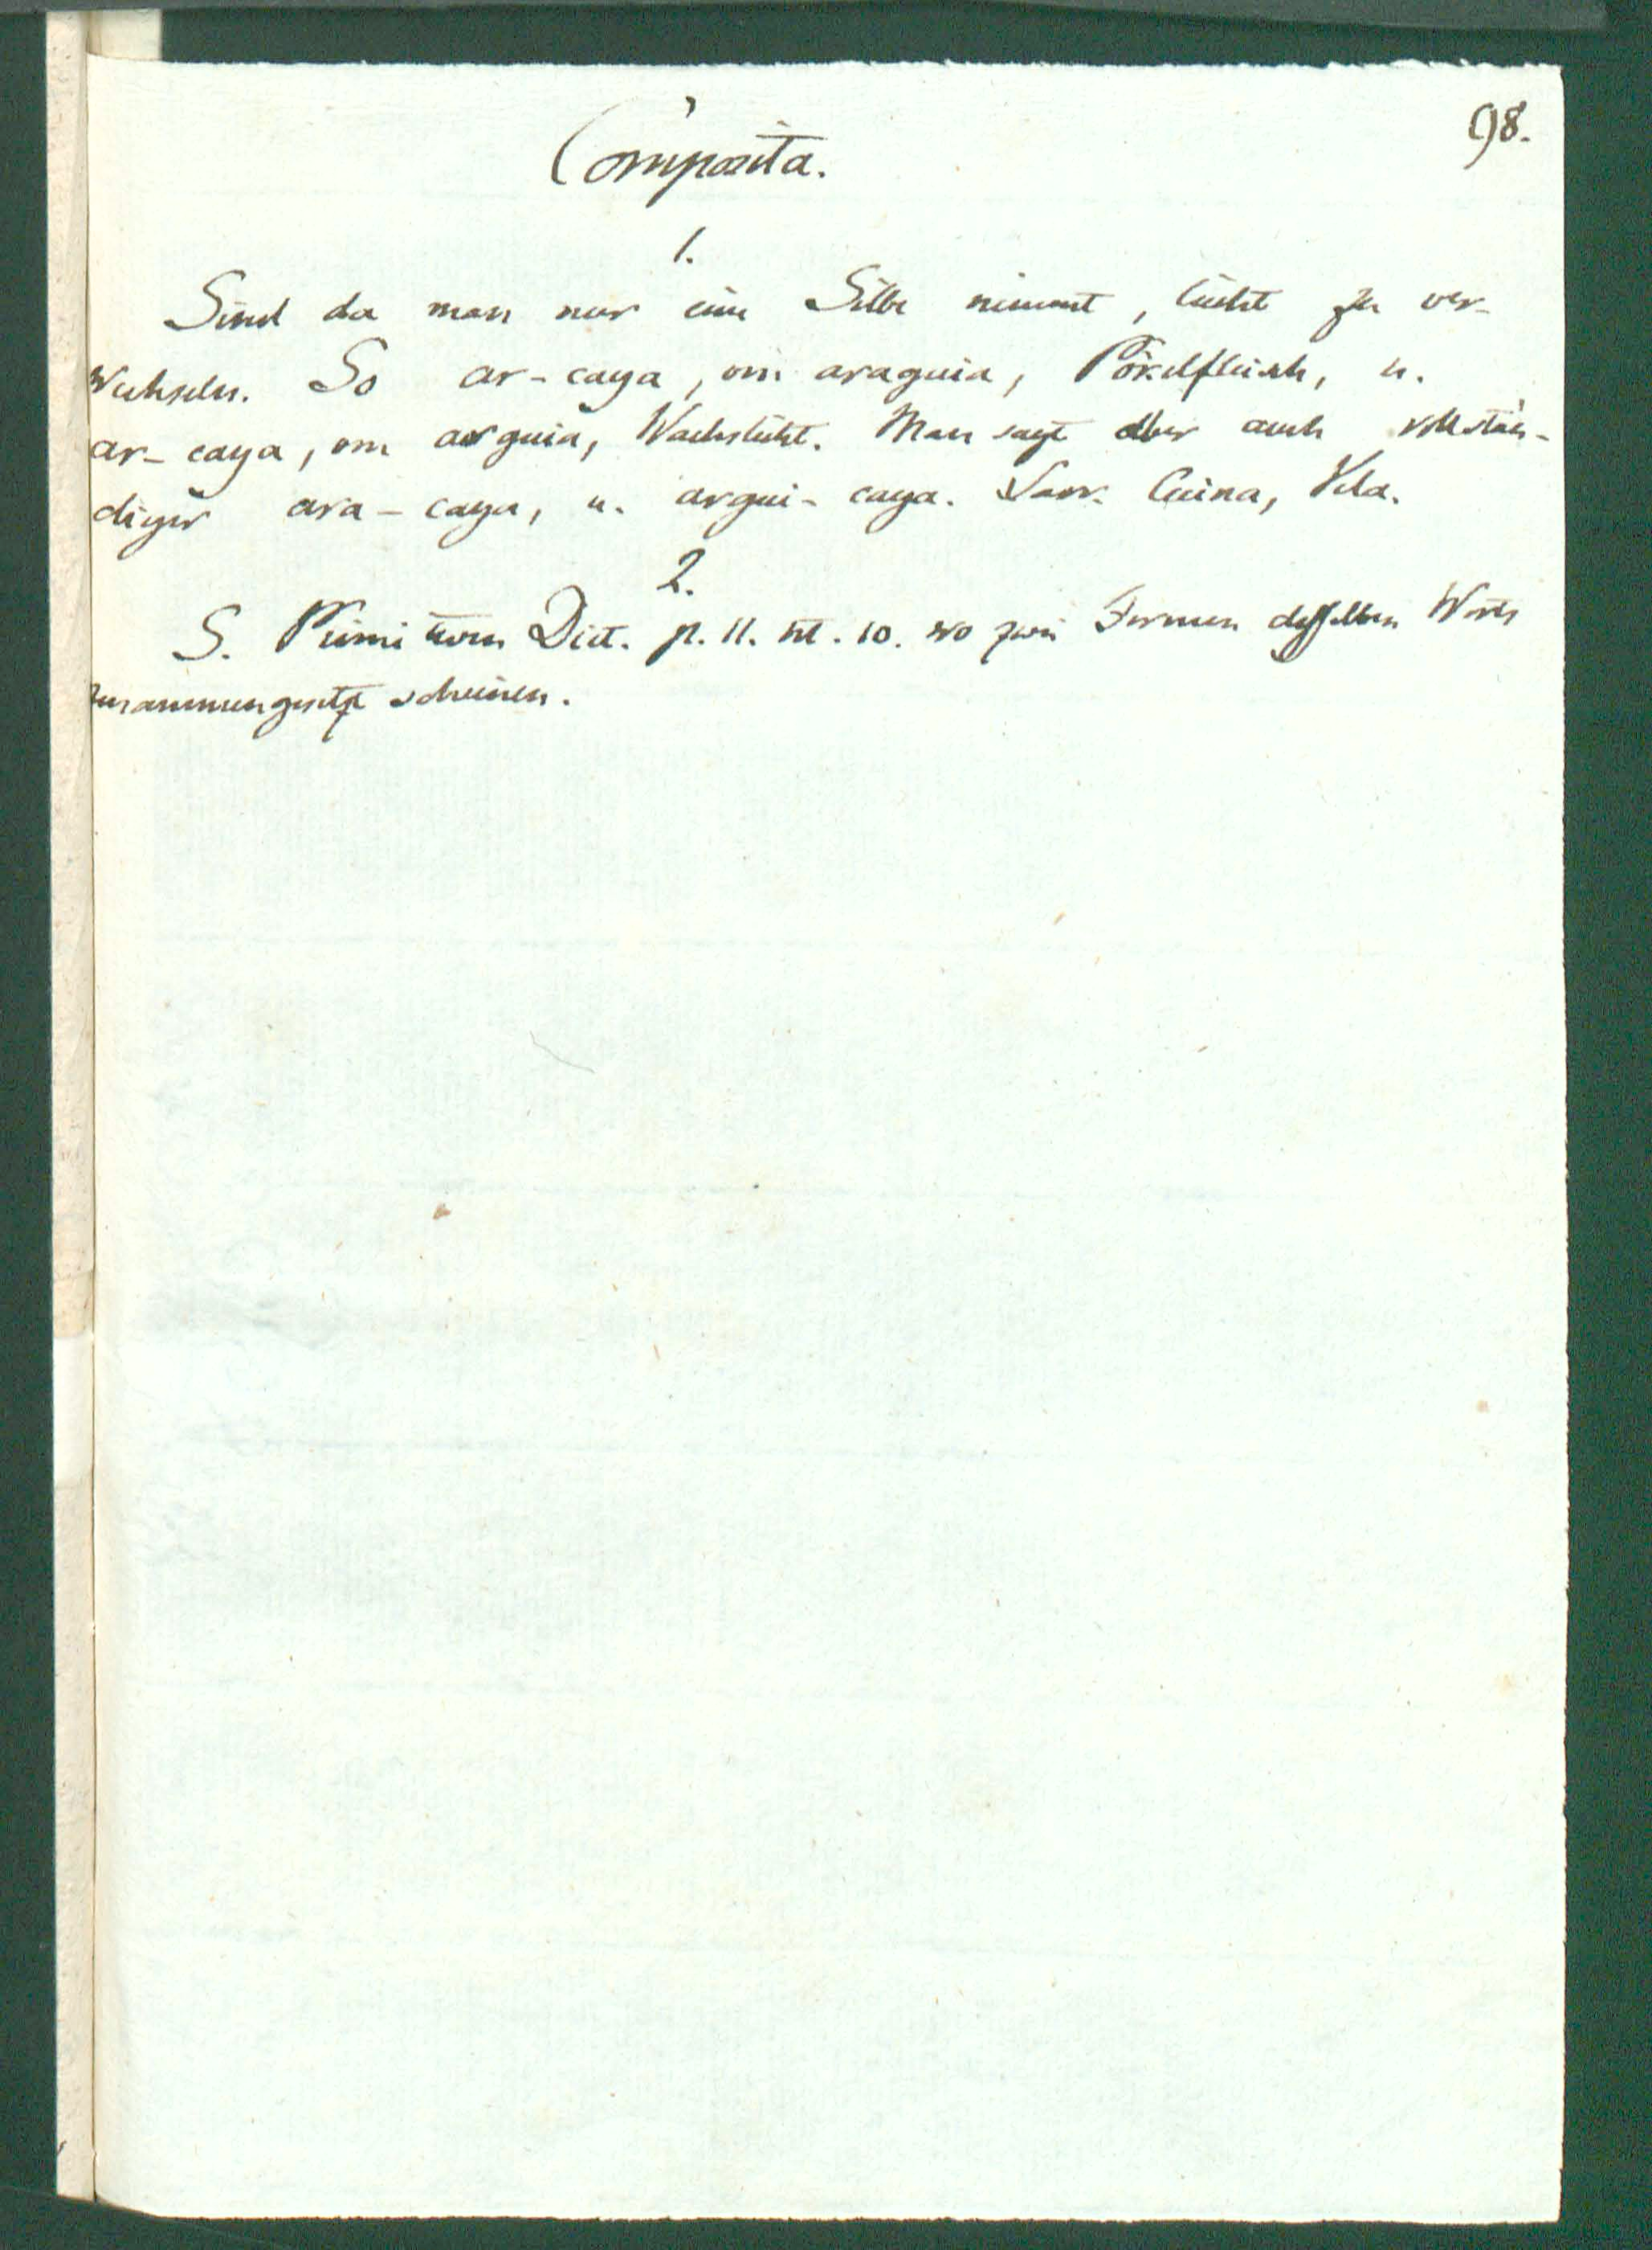 98.
Composita.
1.
Sind da man nur eine Silbe nimmt, leicht zu ver-
wechseln. So ar-caya, von araguia, Pökelfleisch, u.
ar-caya, von arguia, Wachslicht. Man sagt aber auch vollstän-
diger ara-caya, u. argui-caya. Larr. Cecina, Vela.
2.
S. Primitiven Dict. p. 11. nt. 10. wo zwei Formen desselben Worts
zusammengesetzt scheinen.